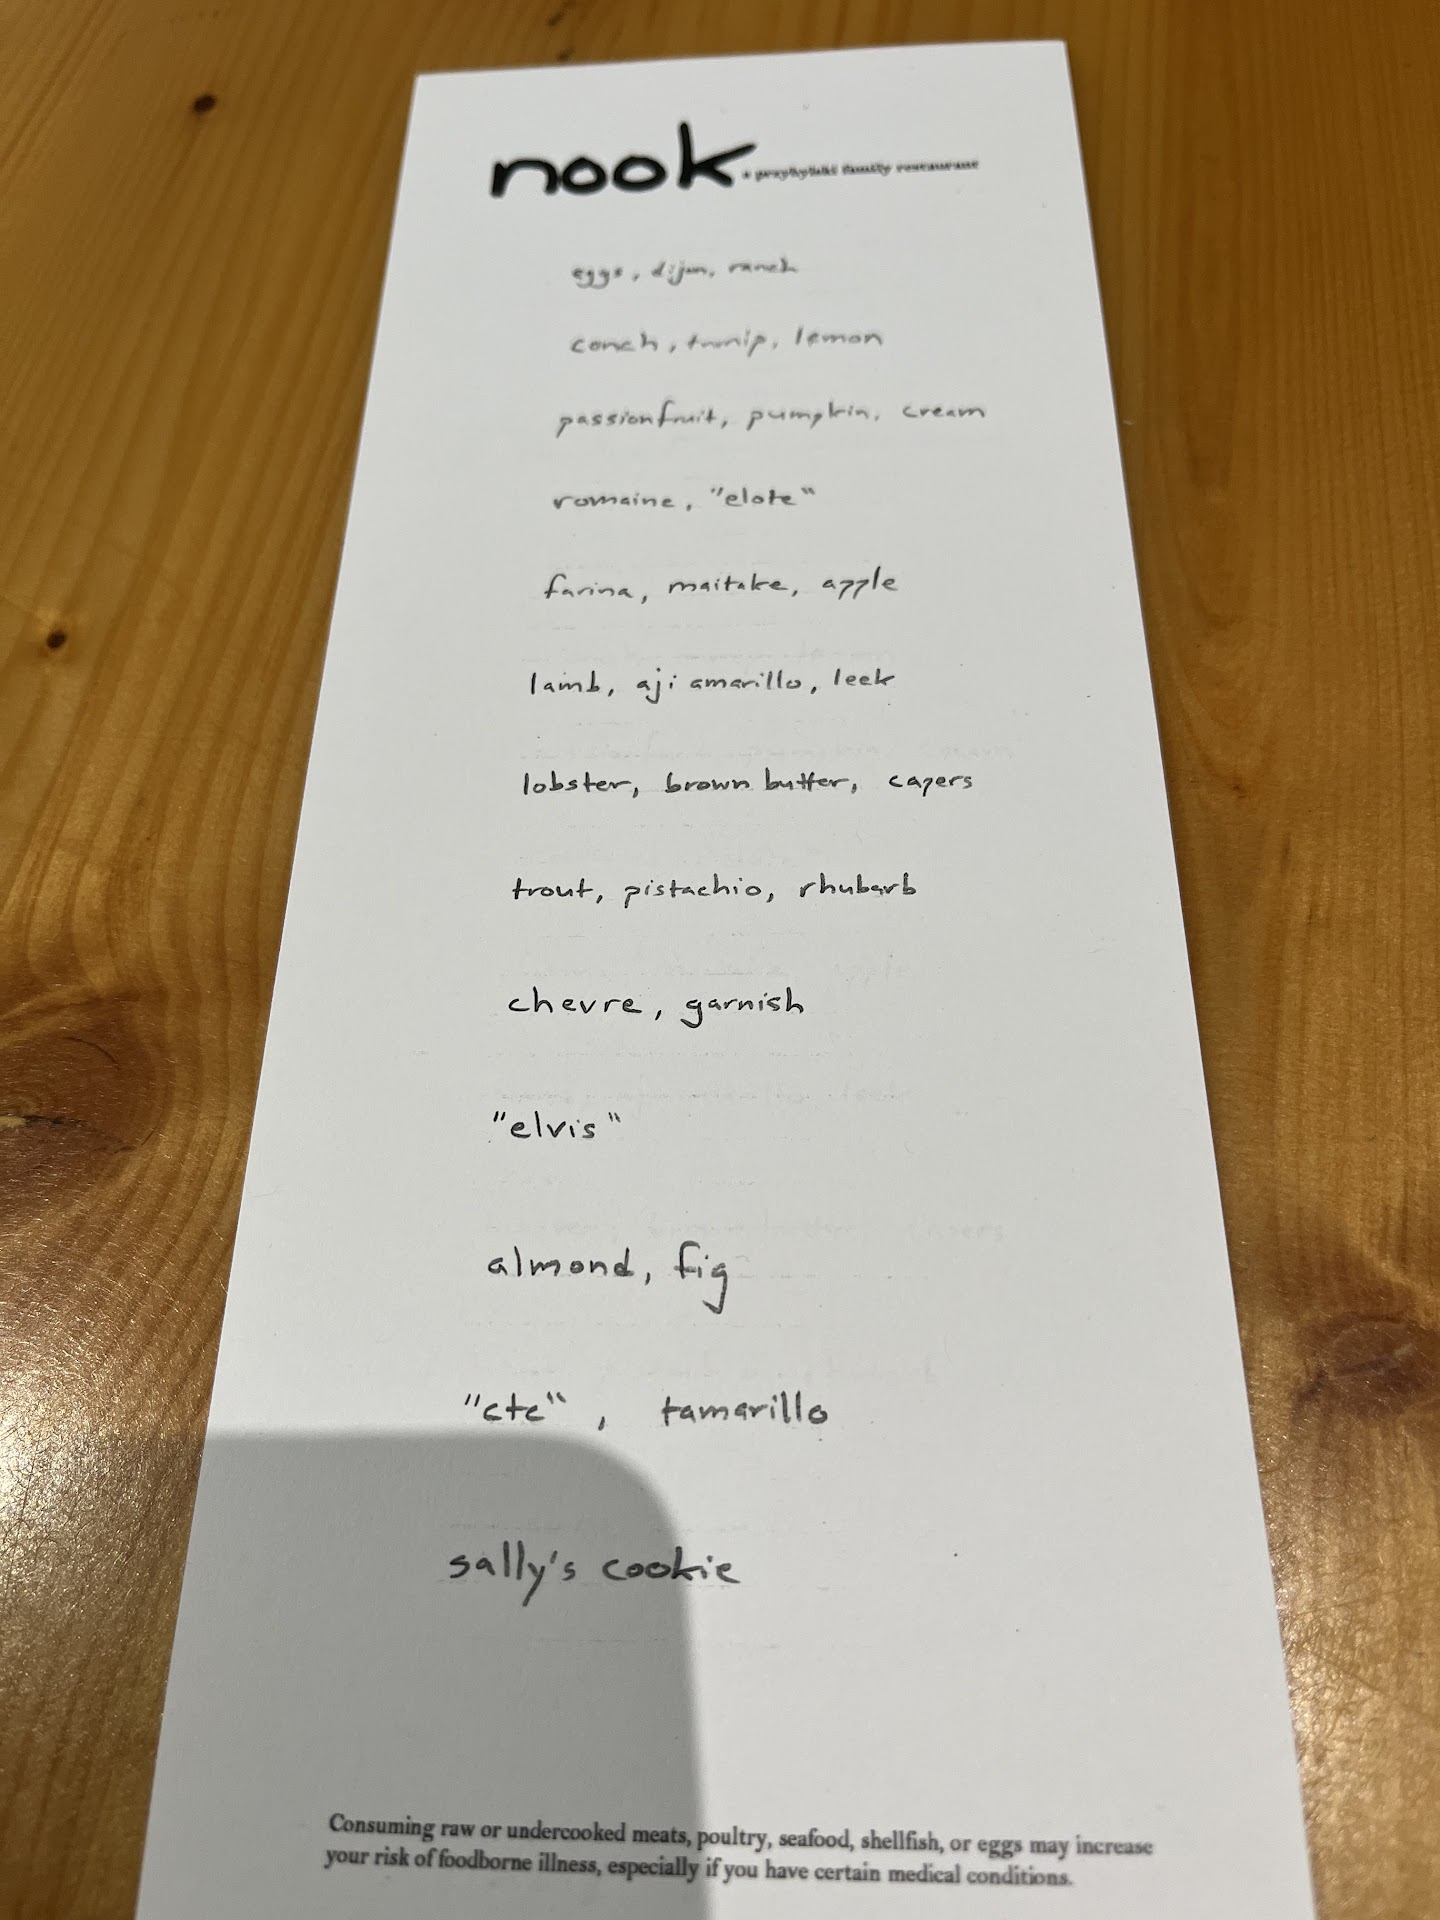 nook a przybylski family restaurant
eggs, dijon, ranch
conch, turnip, lemon
passionfruit, pumpkin, cream
romaine, "elote"
farina, maitake, apple
lamb, aji amarillo, leek
lobster, brown butter, capers
trout, pistachio, rhubarb
chevre, garnish
"elvis"
almond, fig
"ctc", tamarillo
sally's cookie
Consuming raw or undercooked meats, poultry, seafood, shellfish, or eggs may increase
your risk of foodborne illness, especially if you have certain medical conditions.